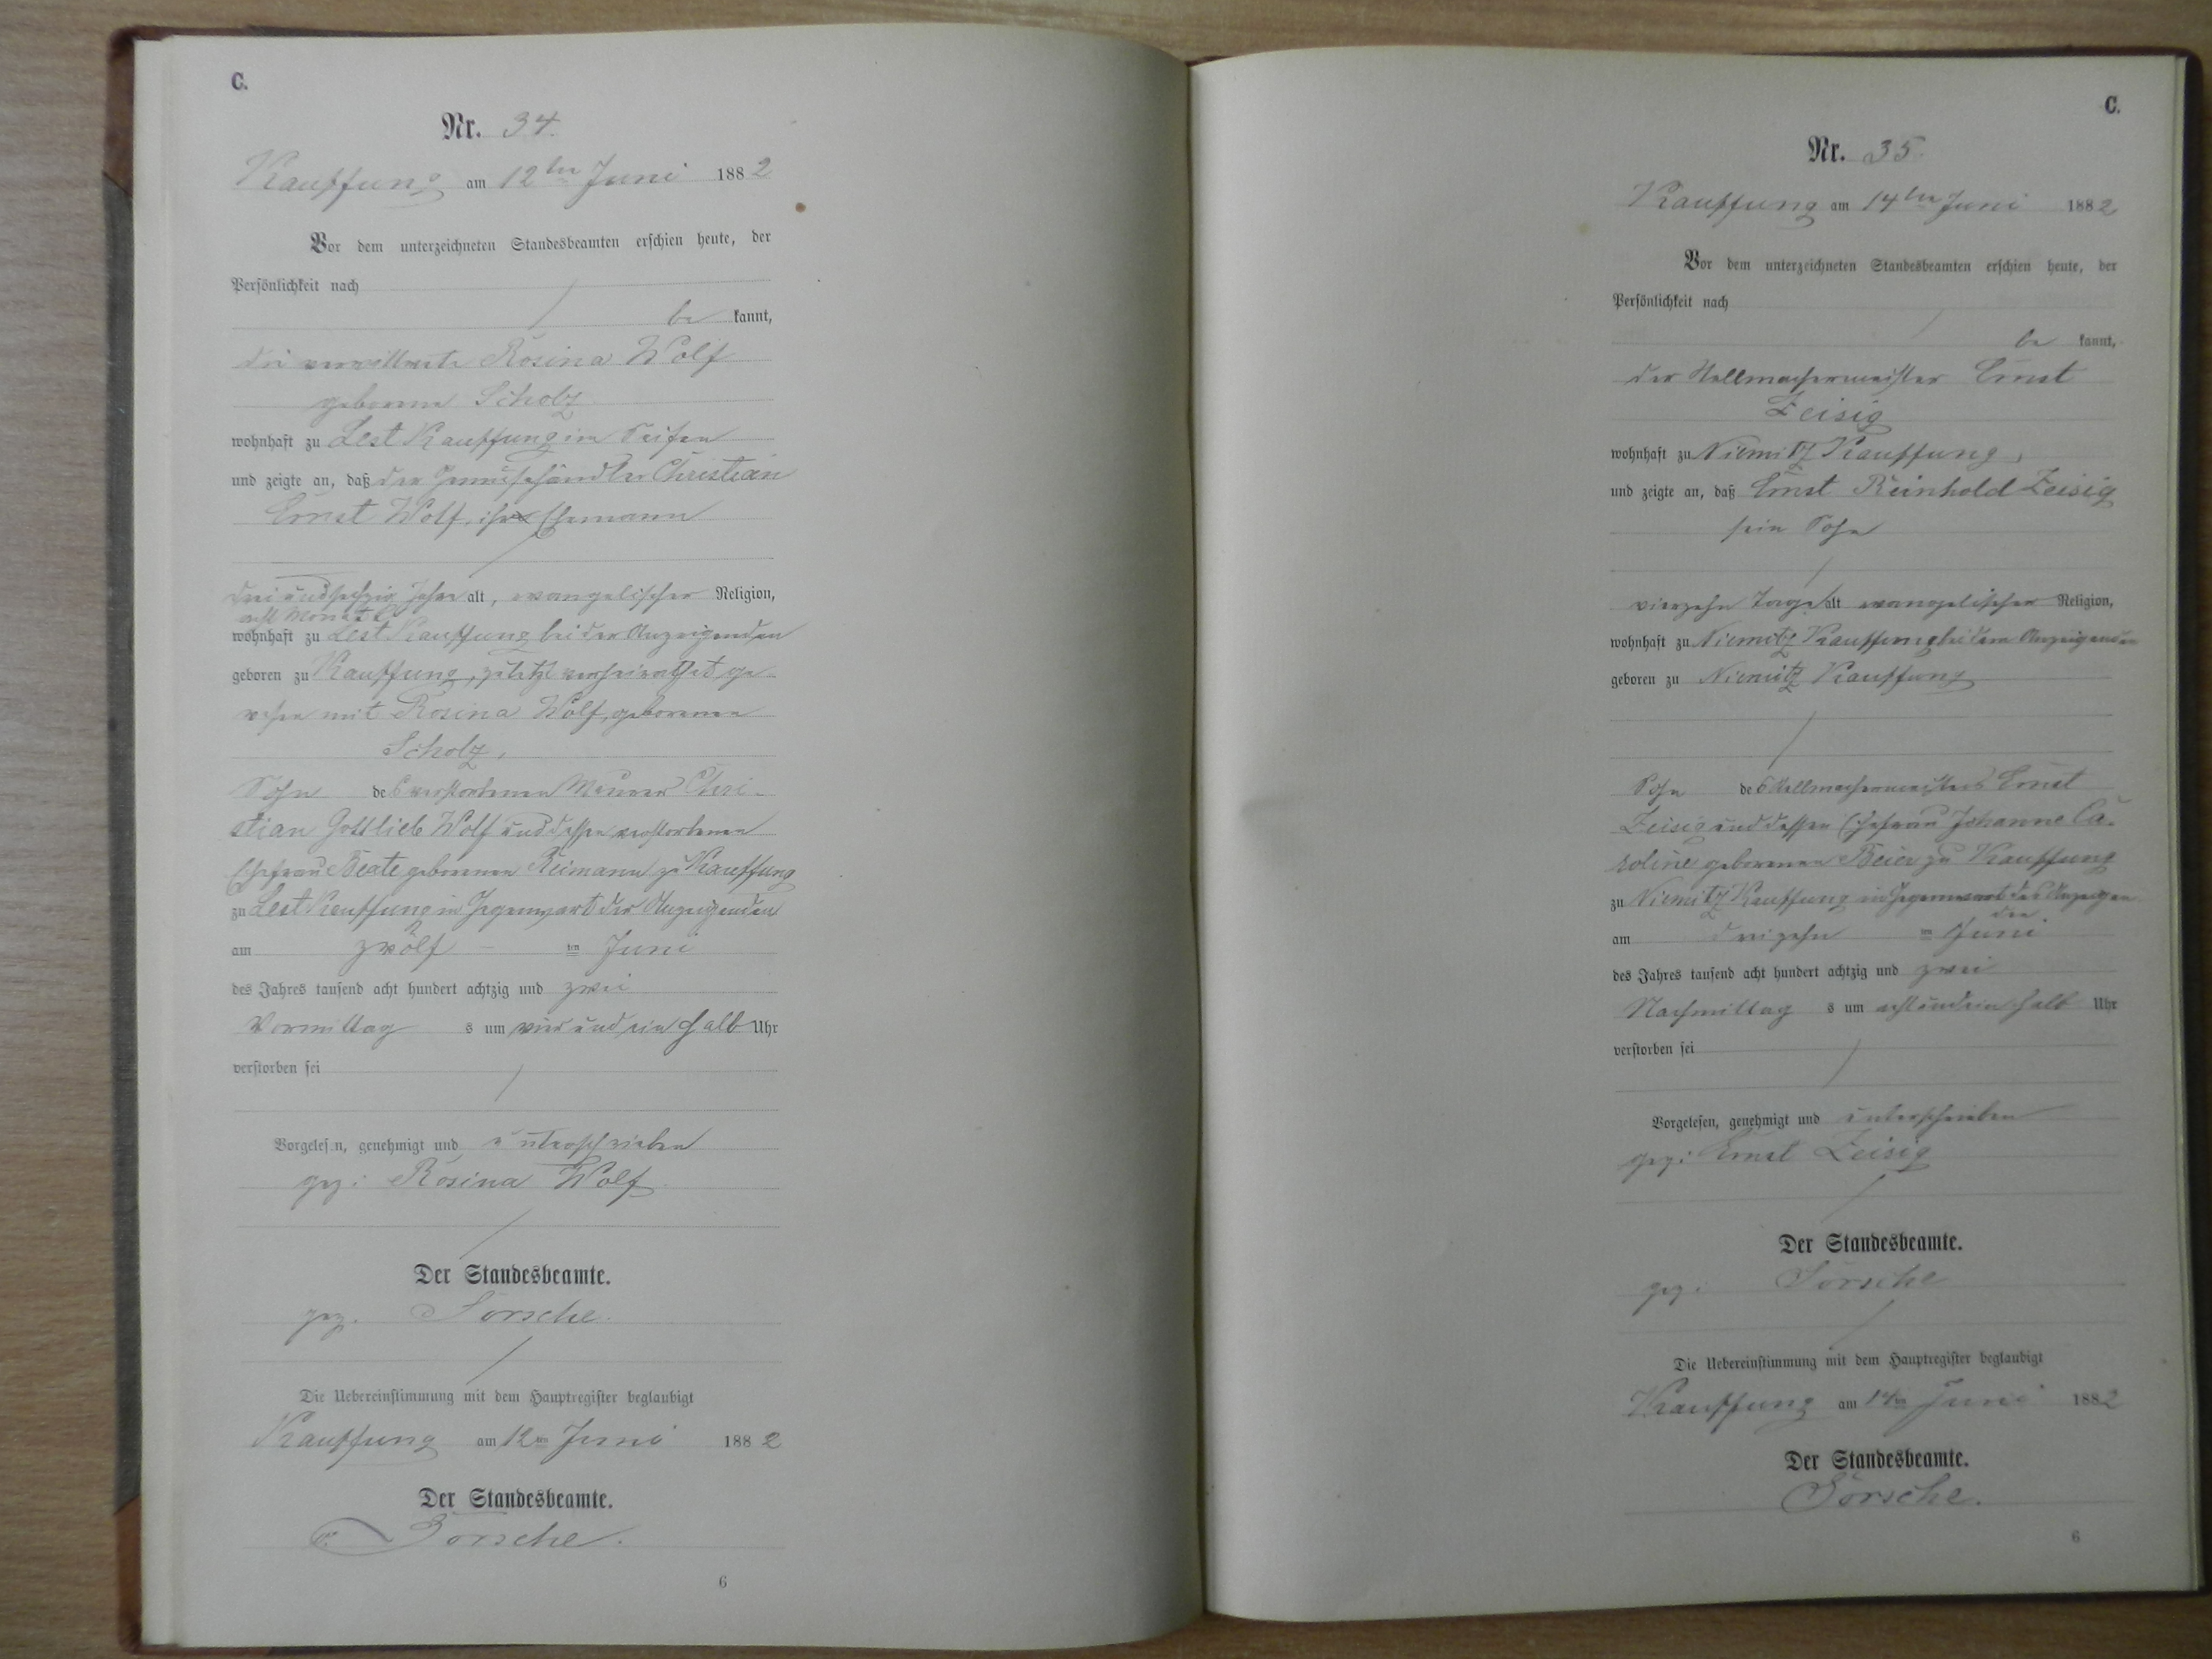 C.
Nr. 34.
Kauffung am 12ten Juni 1882
Vor dem unterzeichneten Standesbeamten erschien heute, der
Persönlichkeit nach
be kannt,
die verwittwete Rosina Wolf
geborene Scholz
wohnhaft zu Lest Kauffung im Seifen
und zeigte an, daß der Gemüsehändler Christian
Ernst Wolf, ihr Ehemann
drei und sechzig Jahre alt, evangelischer Religion,
acht Monate
wohnhaft zu Lest Kauffung bei der Anzeigenden
geboren zu Kauffung, zuletzt verheirathet ge-
wesen mit Rosina Wolf, geborenen
Scholz,
Sohn des verstorbenen Maurer Chri-
stian Gottlieb Wolf und dessen verstorbenen
Ehefrau Beate geborenen Reimann zu Kauffung
zu Lest Kauffung in Gegenwart der Anzeigenden
am zwölf ten Juni
des Jahres tausend acht hundert achtzig und zwei
Vormittag s um vier und ein halb Uhr
verstorben sei
Vorgelesen, genehmigt und unterschrieben
gez: Rosina Wolf.
Der Standesbeamte.
gez. Sörsche.
Die Uebereinstimmung mit dem Hauptregister beglaubigt
Kauffung am 12ten Juni 1882
Der Standesbeamte.
Sörsche.
6
C.
Nr. 35.
Kauffung am 14ten Juni 1882
Vor dem unterzeichneten Standesbeamten erschien heute, der
Persönlichkeit nach
be kannt,
der Stellmachermeister Ernst
Zeisig
wohnhaft zu Niemitz Kauffung,
und zeigte an, daß Ernst Reinhold Zeisig
sein Sohn
vierzehn Tage alt evangelischer Religion,
wohnhaft zu Niemitz Kauffung bei dem Anzeigenden
geboren zu Niemitz Kauffung
Sohn des Stellmachermeisters Ernst
Zeisig und dessen Ehefrau Johanne Ca-
roline geborenen Beier zu Kauffung
zu Niemitz Kauffung in Gegenwart des Anzeigen-
den
am dreizehn ten Juni
des Jahres tausend acht hundert achtzig und zwei
Nachmittag s um acht und ein halb Uhr
verstorben sei
Vorgelesen, genehmigt und unterschrieben
gez: Ernst Zeisig
Der Standesbeamte.
gez: Sörsche
Die Uebereinstimmung mit dem Hauptregister beglaubigt
Kauffung am 14ten Juni 1882
Der Standesbeamte.
Sörsche.
6